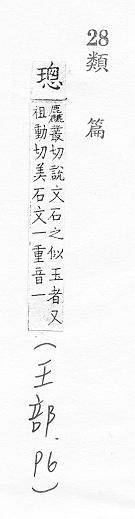 28
類篇
璁
麤叢切說文石之似玉者又
祖動切美石文一重音一
(王部.P6)